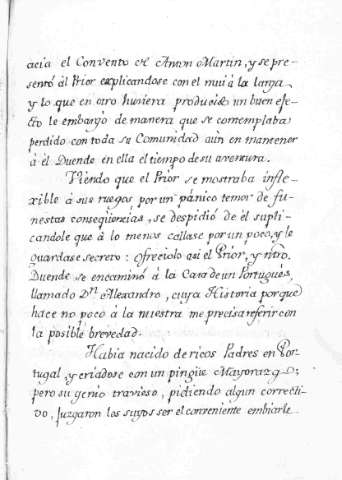 acia el Convento de Anton Martin, y se pre-
sentó al Prior explicandose con el mui á la larga
y lo que en otro huviera producido un buen efe-
cto le embargó de manera que se contemplaba
perdido con toda su Comunidad aun en mantener
á el Duende en ella el tiempo de su aventura.
Viendo que el Prior se mostraba infle-
xible á sus ruegos por un pánico temor de fu-
nestas conseqüenzias, se despidió de él supli-
candole que á lo menos callase por un poco, y le
guardase secreto: ofreciolo asi el Prior, y ntro.
Duende se encaminó á la Casa de un Portugués,
llamado Dn. Alexandro, cuya Historia porque
hace no poco á la nuestra me precisa referir con
la posible brevedad.
Habia nacido de ricos Padres en Por-
tugal, y criadose con un pingüe Mayorazgo;
pero su genio travieso, pidiendo algun correcti-
vo, juzgaron los suyos ser el conveniente embiarle